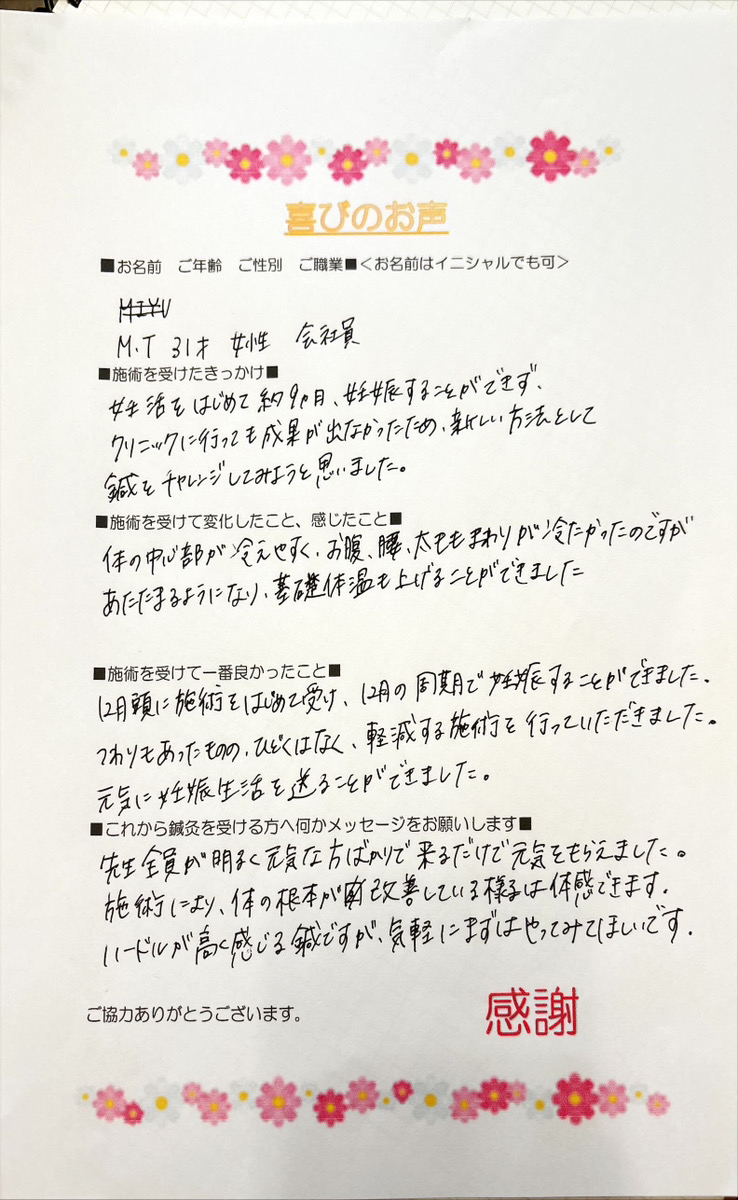 喜びのお声
■お名前 ご年齢 ご性別 ご職業■＜お名前はイニシャルでも可＞
MIYU
M.T 31才 女性 会社員
■施術を受けたきっかけ■
妊活をはじめて約9ヵ月、妊娠することができず、
クリニックに行っても成果が出なかったため、新しい方法として
鍼をチャレンジしてみようと思いました。
■施術を受けて変化したこと、感じたこと■
体の中心部が冷えやすく、お腹、腰、太ももまわりが冷たかったのですが
あたたまるようになり、基礎体温も上げることができました
■施術を受けて一番良かったこと■
12月頭に施術をはじめて受け、12月の周期で妊娠することができました。
つわりもあったものの、ひどくはなく、軽減する施術を行っていただきました。
元気に妊娠生活を送ることができました。
■これから鍼灸を受ける方へ何かメッセージをお願いします■
先生全員が明るく元気な方ばかりで来るだけで元気をもらえました。
施術により、体の根本が改善している様子は体感できます。
ハードルが高く感じる鍼ですが、気軽にまずはやってみてほしいです.
ご協力ありがとうございます。
感謝